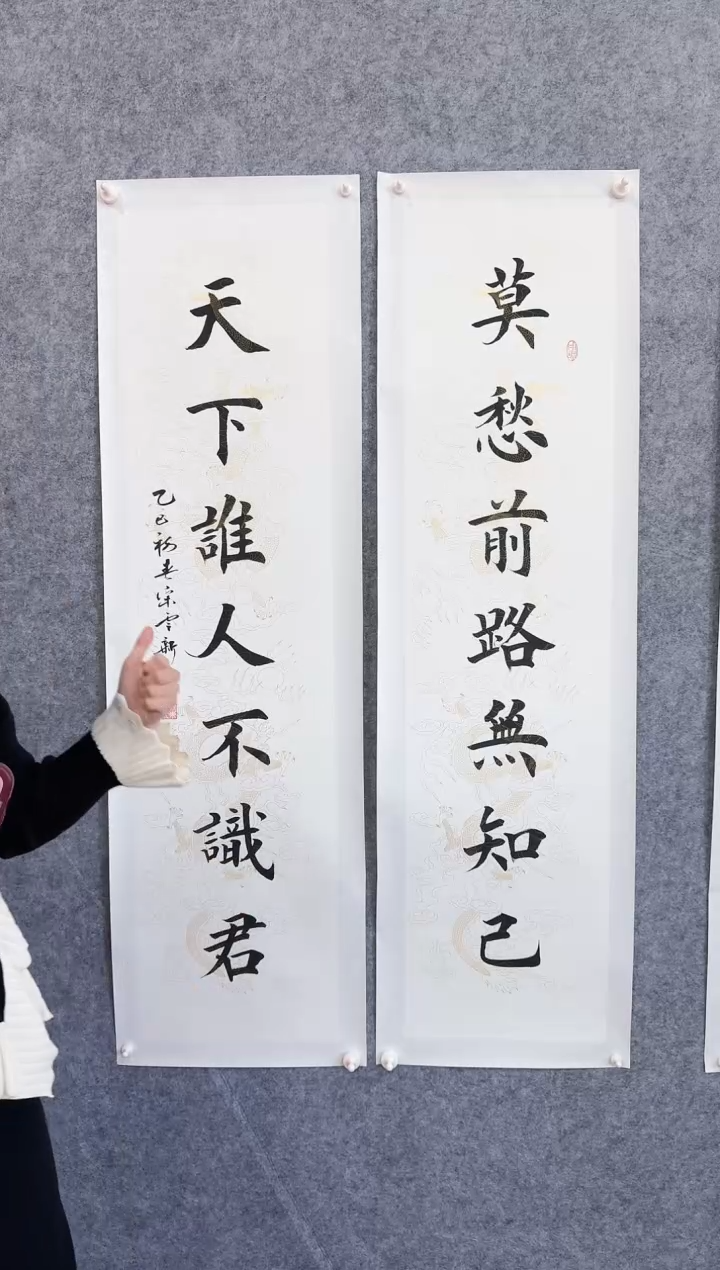 莫愁前路無知己
天下誰人不識君
乙巳初春宋雲新